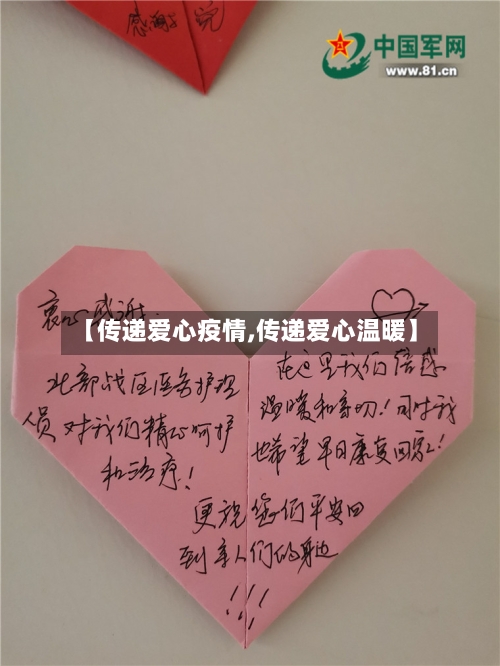 感谢
中国军网
www.81.cn
衷心感谢:
【传递爱心疫情,传递爱心温暖】
北部战区医务护理
人员对我们精心呵护
和治疗!
在这里我们倍感
温暖和亲切!同时我
也希望早日康复回家!
更祝您们平安回
到亲人们的身边
!!!